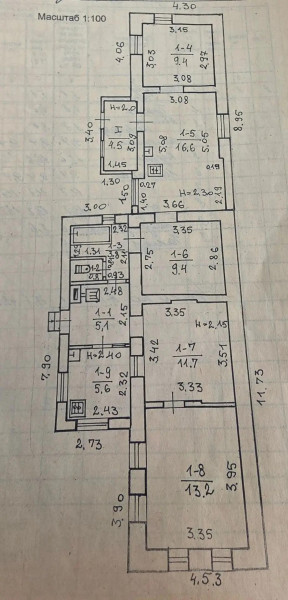 4.30
Масштаб 1:100
3.15
4.06
3.03
1-4
9.4
2.97
3.08
3.08
н=2.0
3.40
I
4.5
3.09
1.45
1.30
5.08
1-5
16.6
5.05
8.95
0.19
2.19
н=2.30
0.27
1.50
1.40
3.66
3.00
2.32
3.35
1.31
1-3
2.11
1-2
0.8
0.93
2.75
1-6
9.4
2.86
2.48
1-1
5.1
2.15
3.35
н=2.15
н=2.40
3.42
1-7
11.7
3.51
7.90
1-9
5.6
2.32
3.33
2.43
2.73
11.73
1-8
13.2
3.95
3.90
3.35
4.53